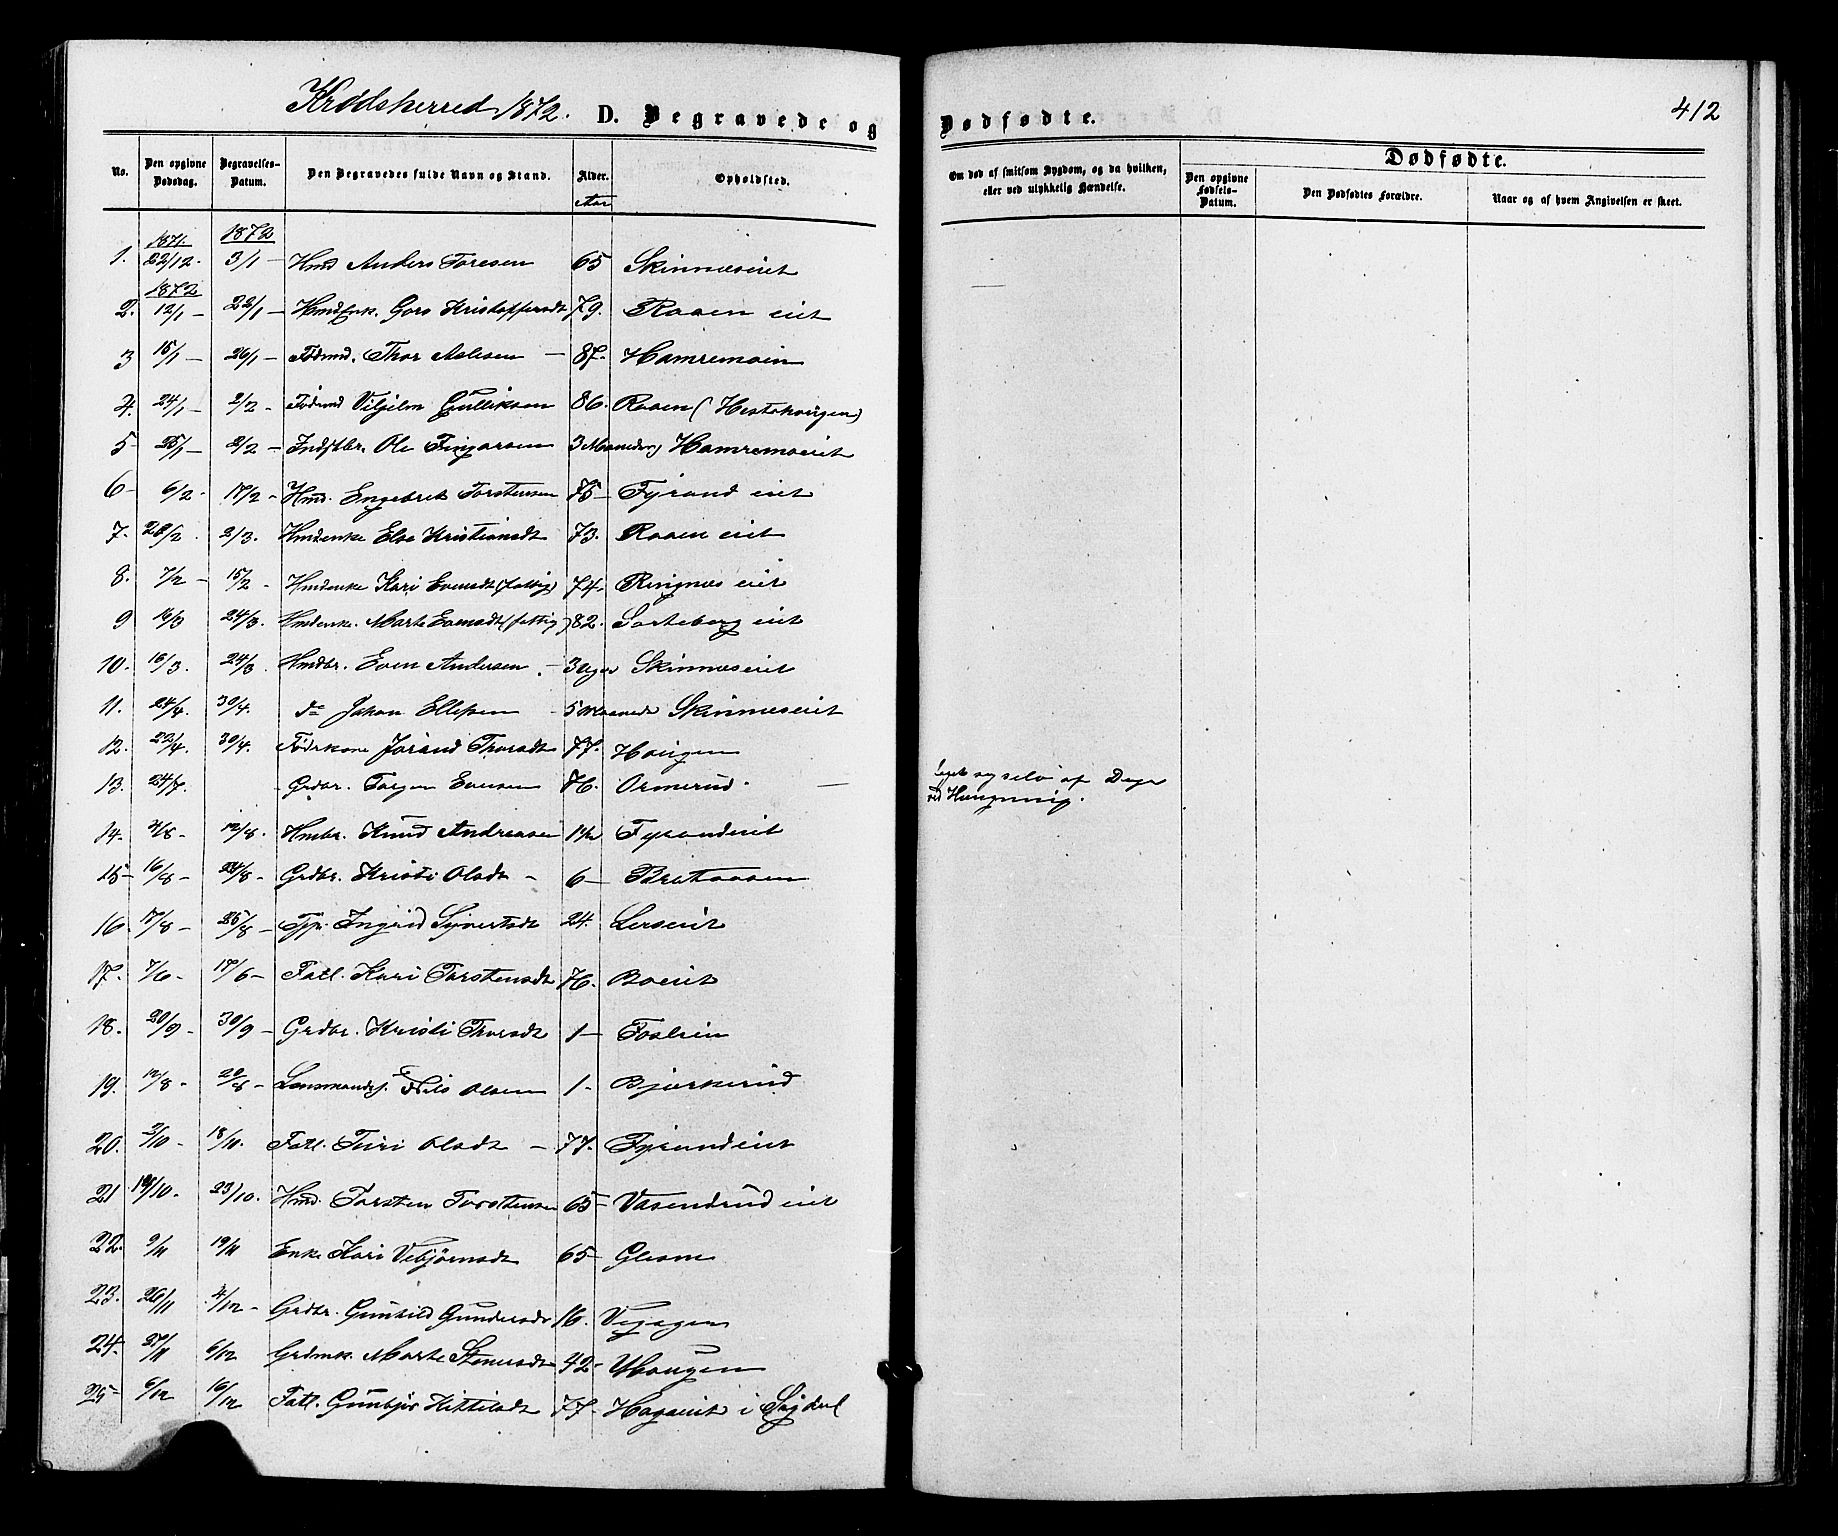 Krødsherred 1872. D. Begravede og Dødfødte. 412
No. Den opgivne Dødsdag. Begravelses-Datum. Den Begravedes fulde Navn og Stand. Alder. Opholdsted. Om død af smitsom Sygdom, og da hvilken, eller ved ulykkelig Hændelse. Dødfødte.
Den opgivne Fødsels-Datum. Den Dødfødtes Forældre. Naar og af hvem Angivelsen er skeet.
Aar
1871. 1872
1. 22/12. 3/1 - Hmd Anders Toresen 65 Skinnæseiet
1872
2. 12/1 - 22/1 - Hmdenk. Goro Kristoffersdt 79. Raaen eiet
3 15/1 - 26/1 - Fødmd. Thor Aslesen - 87. Hamremoen
4. 24/1 - 2/2 - Fødmd Viljelm Gulliksen 86. Raaen (Hestehougen)
5- 25/1 - 2/2 - Indstbr. Ole Fingarsen 3 Maaneder) Hamremoeiet
6- 6/2 - 17/2 - Hmd. Engebret Torstensen 75- Fyrand eiet
7. 28/2. 2/3. Hmdenke Elsa Kristiansdt 73. Raaen eiet
8. 7/2 - 15/2 - Hmdenke Kari Evensdt (fattig) 74. Ringnæs eiet
9 16/3 24/3. Hmdenke. Marte Evensdt (fattig) 82. Sorteberg eiet
10. 16/3. 24/3 Hmdbr. Even Andersen. - 3 Uger Skinnæseiet
11. 24/4. 30/4. do Johan Ellefsen - 5 Maaneder Skinnæseiet
12. 22/4. 30/4. Fødekone Jørand Thorsdt 77. Hougen
13. 24/7. - Grdbr. Torger Evensen 76. Ormerud. - ved Hængning.
14. 4/8 - 12/8. Hmbr. Knud Andreasen 1½ Fyrandeiet
15 16/8 - 24/8 - Grdbr. Kristi Olsdt - 6 - Bretaasen
16 17/8 - 25/8 - Tjp. Ingrid Syvertsdt 24. Lerseiet
17. 7/6 - 17/6 - Fatl. Kari Torstensdt 76. Boeiet
18. 20/9 - 30/9 - Grdbr. Kristi Thorsdt 1- Foslien
19. 12/8 - 20/8 - Lensmandsf. Nils Olsen 1. Bjørkerud
20. 2/10 - 18/10. Fatl. Turi Olsdt - 77. Fyrandeiet
21 14/10. 23/10. Hmd. Torsten Torstensen 65- Vasendrud eiet
22. 9/11 19/11 Enke Kari Vebjørnsdt 65- Glesne
23. 26/11 4/12 - Grdbr. Gunhild Gundersdt 16. Veysgen
24. 27/11 6/12 Grdmk. Marte Stenersdt 42- Hougen
25- 6/12 16/12 Fatl. Gunbjør Kittilsdt 77. Hagaeiet i Sigdal